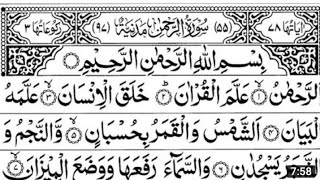 اٰیَاتُهَا ٧٨ (٥٥) سُوْرَةُ الرَّحْمٰنِ مَدَنِيَّةٌ (٩٧) رُكُوْعَاتُهَا ٣
بِسْمِ اللّٰهِ الرَّحْمٰنِ الرَّحِيْمِ
اَلرَّحْمٰنُ ۙ‏ ١ عَلَّمَ الْقُرْاٰنَ ؕ ٢ خَلَقَ الْاِنْسَانَ ۙ ٣ عَلَّمَهُ
الْبَيَانَ ٤ اَلشَّمْسُ وَالْقَمَرُ بِحُسْبَانٍ ٥ وَّالنَّجْمُ وَ
الشَّجَرُ يَسْجُدٰنِ ٦ وَالسَّمَآءَ رَفَعَهَا وَوَضَعَ الْمِيْزَانَ ٧
7:58